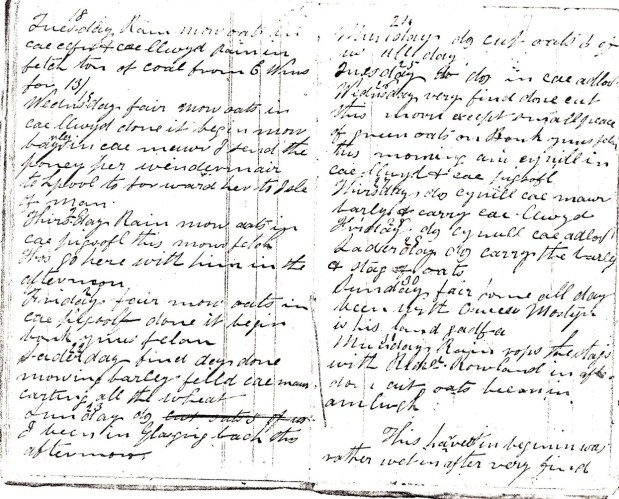 18
Tuesday Rain mow oats in
cae & cae llwyd Rain in
fetch ton of coal from E Wms
for 13/
Wednisday fair mow oats in
cae llwyd done it begin mow
barley in cae mawr I send the
poney per wendermair
to Lpool to forward her to Isle
of man.
Thirsday Rain mow oats in
cae pigsofl this mow felen
go here with him in the
afternoon
Friday fair mow oats in
cae pigsofl done it begin
bonk ynus felan
Saderday find day done
mowing barley felld cae mawr
carting all the wheat
23
Sunday do cut oats
I been in Glasging back this
afternoon.
24
Munday do cut oats
all day
25
Tuesday do do in cae adlod
Wednisday very find done cut
this moon acept small peace
of green oats on Bonk ynus felen
this morning am cynill in
cae llwyd & cae pigsofl
Thirsday do cynill cae mawr
barly & carry cae llwyd
Friday do cynull cae adlod
29
Saderday do carry the barley
& stag oats
30
Sunday fair fome all day
been with Mostyn
is his land gadfa
31
Munday Rain rops the stags
with Rowland in
do. i cut oats
amlwgh
This harvest in beginin was
rather wet in after very find